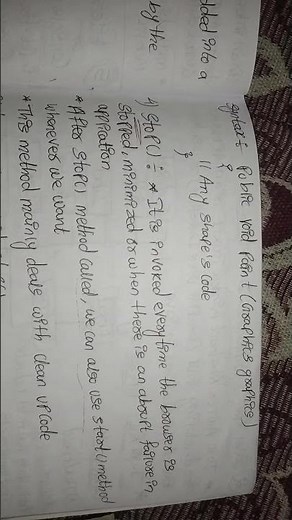 dded into a
by the
syntax :- Public void Paint (Graphics graphics)
{
// Any shape's code
}
4) Stop() :- * It is invoked everytime the browser is
stopped, minimized or when there is an abrupt failure in
application
* After stop() method called, we can also use start() method
whenever we want,
* This method mainly deals with clean up code